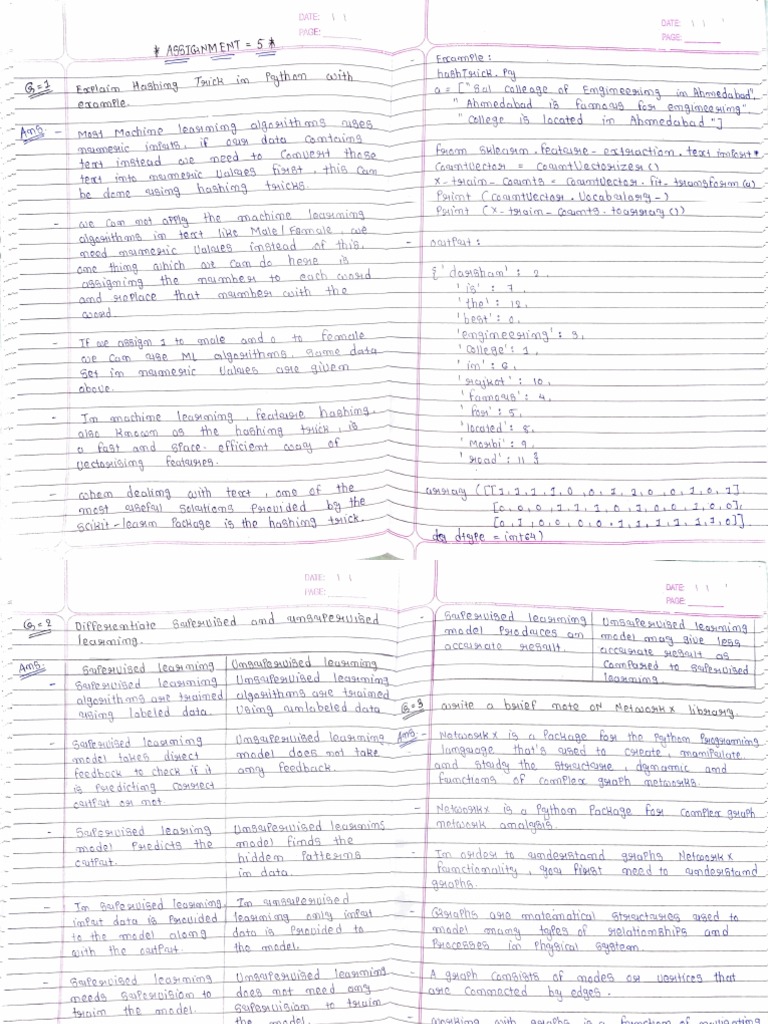 DATE: 11
PAGE:
* ASSIGNMENT = 5 *
Q=1 Explain Hashing Trick in Python with
example.
Ans - Most Machine learning algorithms uses
numeric inputs, if our data contains
text instead we need to convert those
text into numeric values first. this can
be done using hashing tricks.
- we can not apply the machine learning
algorithms in text like Male/Female. we
need numeric values instead of this,
one thing which we can do here is
assigning the number to each word
and replace that number with the
word.
- If we assign 1 to male and 0 to female
we can use ML algorithms. same data
set in numeric values are given
above.
- In machine learning, feature hashing,
also known as the hashing trick, is
a fast and space-efficient way of
vectorising features.
- when dealing with text, one of the
most useful solutions provided by the
scikit-learn package is the hashing trick.
DATE: 11
PAGE:
- Example:
hashTrick.py
a = ["Sal colleage of Engineering in Ahmedabad",
"Ahmedabad is famous for engineering",
"College is located in Ahmedabad"]
from sklearn.feature-extraction.text import *
CountVector = CountVectorizer()
x-train-counts = CountVector.fit-transform(a)
Print (countVector.Vocabulary-)
Print (x-train-counts.toarray())
- output:
{'darshan': 2,
'is': 7,
'the': 12,
'best': 0,
'engineering': 3,
'College': 1,
'in': 6,
'rajkot': 10,
'famous': 4,
'for': 5,
'located': 8,
'Morbi': 9,
'road': 11 }
array ([[1,1,1,1,0,0,1,1,0,0,1,0,1],
[0,0,0,1,1,1,0,1,0,0,1,0,0],
[0,1,0,0,0,0,1,1,1,1,1,1,0]]
dtype = int64)
DATE: 11
PAGE:
Q=2 Differentiate supervised and unsupervised
learning.
Ans. Supervised learning | Unsupervised learning
- Supervised learning | Unsupervised learning
algorithms are trained | algorithms are trained
using labeled data. | using unlabeled data
- Supervised learning | Unsupervised learning
model takes direct | model does not take
feedback to check if it | any feedback.
is predicting correct
output or not.
- Supervised learning | Unsupervised learning
model predicts the | model finds the
output. | hidden patterns
in data.
- In supervised learning, | In unsupervised
input data is provided | learning only input
to the model along | data is provided to
with the output. | the model.
- Supervised learning | Unsupervised learning
needs supervision to | does not need any
train the model. | supervision to train
the model.
DATE: 11
PAGE:
- Supervised learning | Unsupervised learning
model produces an | model may give less
accurate result. | accurate result as
compared to supervised
learning.
Q=3 write a brief note on NetworkX library.
Ans - NetworkX is a package for the Python Programming
language that's used to create, manipulate,
and study the structure, dynamic and
functions of complex graph networks.
- NetworkX is a Python Package for complex graph
network analysis.
- In order to understand graphs NetworkX
functionality, you first need to understand
graphs.
- Graphs are matematical structures used to
model many types of relationships and
processes in physical system.
- A graph consists of nodes or vertices that
are connected by edges.
- working with graphs is a function of navigating